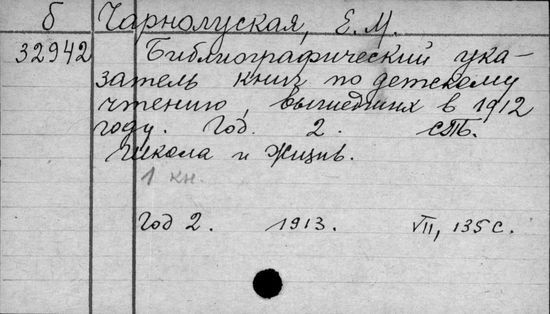 б Чарнолуская, Е. М.
32942 Библиографический ука-
затель книг по детскому
чтению, вышедших в 1912
году. Год. 2. СПб.
Школа и Жизнь.
1 кн.
Год 2. 1913. VII, 135 с.